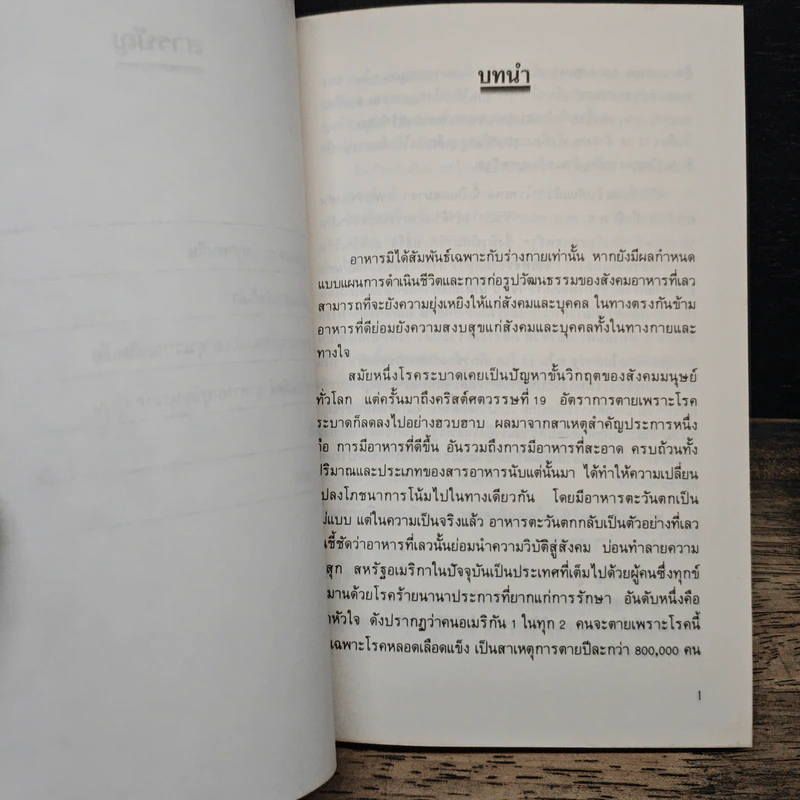 สารบัญ
บทนำ
อาหารมิได้สัมพันธ์เฉพาะกับร่างกายเท่านั้น หากยังมีผลกำหนด
แบบแผนการดำเนินชีวิตและการก่อรูปวัฒนธรรมของสังคมอาหารที่เลว
สามารถที่จะยังความยุ่งเหยิงให้แก่สังคมและบุคคล ในทางตรงกันข้าม
อาหารที่ดีย่อมยังความสงบสุขแก่สังคมและบุคคลทั้งในทางกายและ
ทางใจ
สมัยหนึ่งโรคระบาดเคยเป็นปัญหาขั้นวิกฤตของสังคมมนุษย์
ทั่วโลก แต่ครั้นมาถึงคริสต์ศตวรรษที่ 19 อัตราการตายเพราะโรค
ระบาดก็ลดลงไปอย่างฮวบฮาบ ผลมาจากสาเหตุสำคัญประการหนึ่ง
คือ การมีอาหารที่ดีขึ้น อันรวมถึงการมีอาหารที่สะอาด ครบถ้วนทั้ง
ปริมาณและประเภทของสารอาหารนับแต่นั้นมา ได้ทำให้ความเปลี่ยน
ปลงโภชนาการโน้มไปในทางเดียวกัน โดยมีอาหารตะวันตกเป็น
ม่แบบ แต่ในความเป็นจริงแล้ว อาหารตะวันตกกลับเป็นตัวอย่างที่เลว
ชี้ชัดว่าอาหารที่เลวนั้นย่อมนำความวิบัติสู่สังคม บ่อนทำลายความ
สุก สหรัฐอเมริกาในปัจจุบันเป็นประเทศที่เต็มไปด้วยผู้คนซึ่งทุกข์
มานด้วยโรคร้ายนานาประการที่ยากแก่การรักษา อันดับหนึ่งคือ
หัวใจ ดังปรากฏว่าคนอเมริกัน 1 ในทุก 2 คนจะตายเพราะโรคนี้
เฉพาะโรคหลอดเลือดแข็ง เป็นสาเหตุการตายปีละกว่า 800,000 คน
1